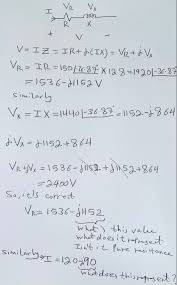 I → VR Vx
R X
+ V -
V = IZ = IR + j(IX) = VR + jVx
VR = IR = 150∠-36.87 × 12.8 = 1920∠-36.87
= 1536 - j1152 V
Similarly
Vx = IX = 1440∠-36.87 = 1152 - j864
jVx = j1152 + 864
VR + jVx = 1536 - j1152 + j1152 + 864
= 2400V
So, it's correct
VR = 1536 - j1152
what's this value
what does it represent
Isn't it pure resistance
Similarly I = 120 - j90
what does this represent?